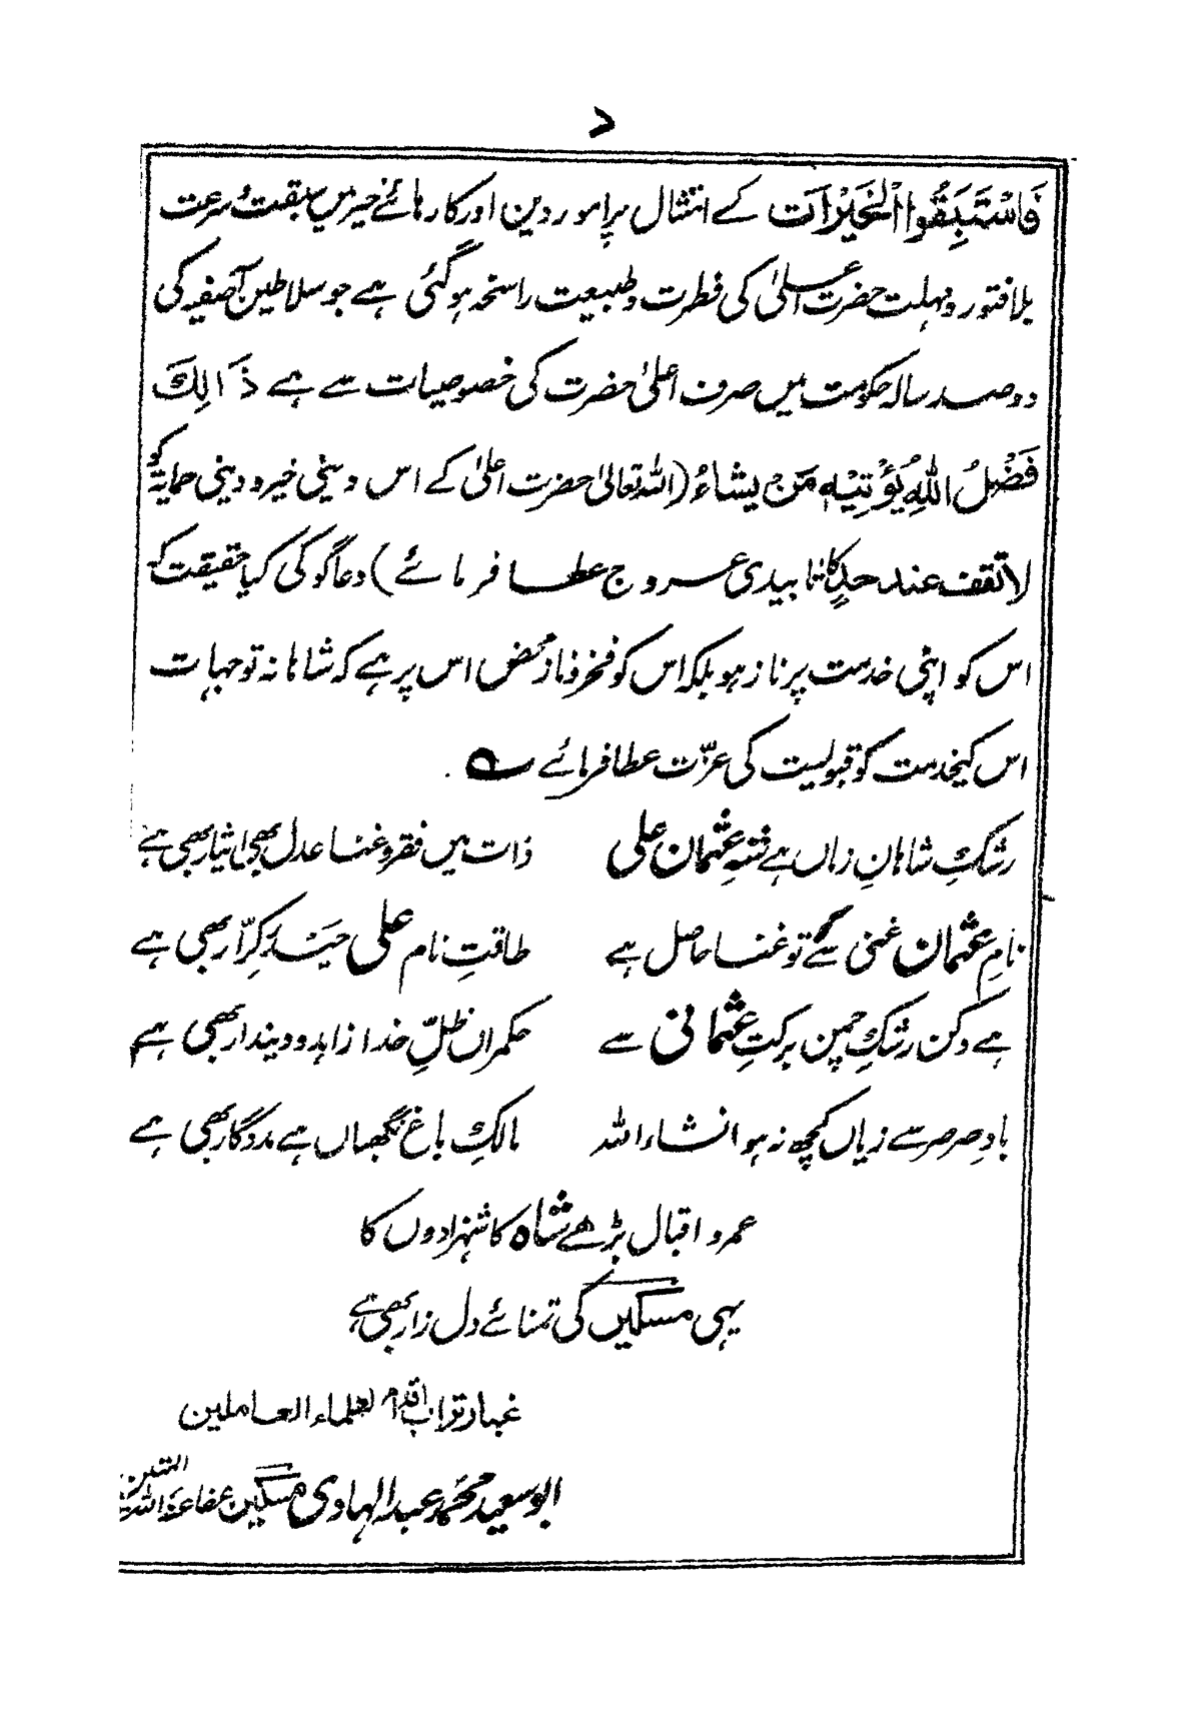 د
فَاسْتَبِقُوا الْخَيْرَات کے امتثال پر امور دین اور کارہائے خیر میں سبقت و سرعت
بلا فتور و مہلت حضرت اعلیٰ کی فطرت و طبیعت راسخہ ہوگئی ہے جو سلاطین آصفیہ کی
دو صد سالہ حکومت میں صرف اعلیٰ حضرت کی خصوصیات سے ہے ذَالِكَ
فَضْلُ اللّٰهِ يُؤْتِيْهِ مَنْ يشَاءُ (اللہ تعالیٰ حضرت اعلیٰ کے اس دینی خیر و دینی حمایۃ کو
لا تقف عند حدٍ کا تابیدی عروج عطا فرمائے) دعاگو کی کیا حقیقت کہ
اس کو اپنی خدمت پر ناز ہو بلکہ اس کو فخر و ناز محض اس پر ہے کہ شاہانہ توجہات
اس کیخدمت کو قبولیت کی عزّت عطا فرمائے ؎
رشکِ شاہانِ زماں ہے عثمان علی ذات میں فقر و غنا عدل بھی ایثار بھی ہے
نامِ عثمان غنی سے تو غنا حاصل ہے طاقتِ نام علی حیدَرِ کرّار بھی ہے
ہے دکن رشکِ چمن برکتِ عثمانی سے حکمراں ظلِّ خدا زاہد و دیندار بھی ہے
بادِ صرصر سے زیاں کچھ نہ ہو انشاء اللہ مالکِ باغ نگہباں ہے مددگار بھی ہے
عمر و اقبال بڑھے شاہ کا شہزادوں کا
یہی مسکیں کی تمنائے دل زار بھی ہے
غبار تراب اقدام العلماء العاملین
ابو سعید محمد عبد الہادی مسکین عفا عنہ اللہ المتین